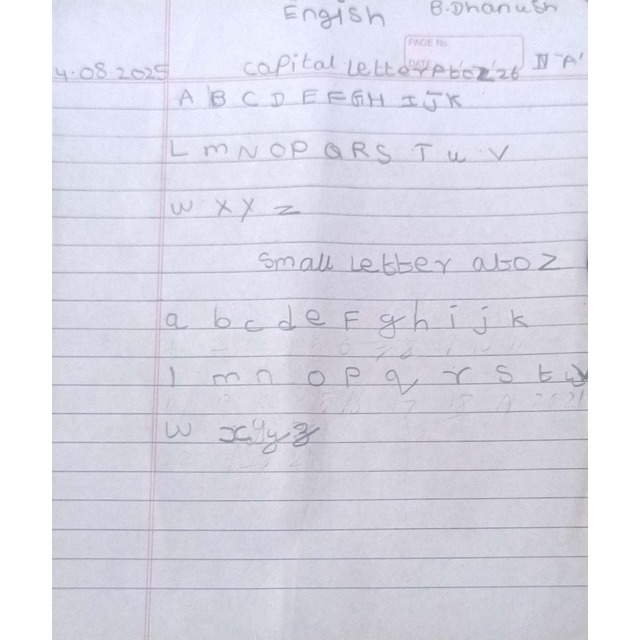 Engish B.Dhanush
PAGE No
4.08.2025 capital letter A to z 26 IV 'A'
A B C D E F G H I J K
L m N O P Q R S T u V
W X Y Z
small letter a to Z
a b c d e F g h i j k
l m n o p q r s t u v
w x y z